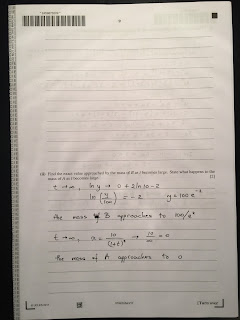 9
(iii) Find the exact value approached by the mass of B as t becomes large. State what happens to the
mass of A as t becomes large. [2]
t → ∞ , ln y → 0 + 2 ln 10 - 2
ln (y/100) = -2 y = 100 e⁻²
the mass B approaches to 100/e²
t → ∞ , x = 10/(1+t)² → 10/∞ = 0
the mass of A approaches to 0
[Turn over